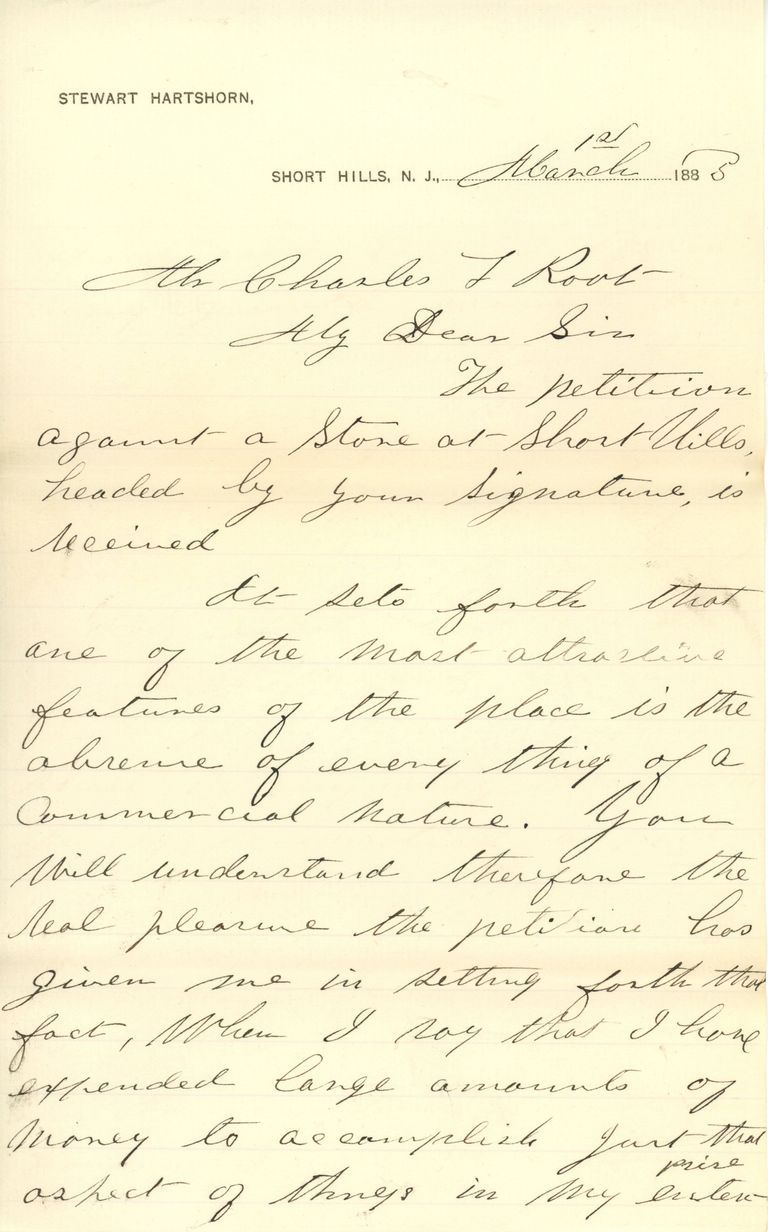 STEWART HARTSHORN,
SHORT HILLS, N. J., March 1st 1885
Mr Charles T Root
My Dear Sir
The petition
against a Store at Short Hills,
headed by your signature, is
received
It sets forth that
one of the most attractive
features of the place is the
absence of every thing of a
Commercial nature. You
will understand therefore the
real pleasure the petition has
given me in setting forth that
fact, When I say that I have
expended large amounts of
money to accomplish just that
aspect of things in my enterprise